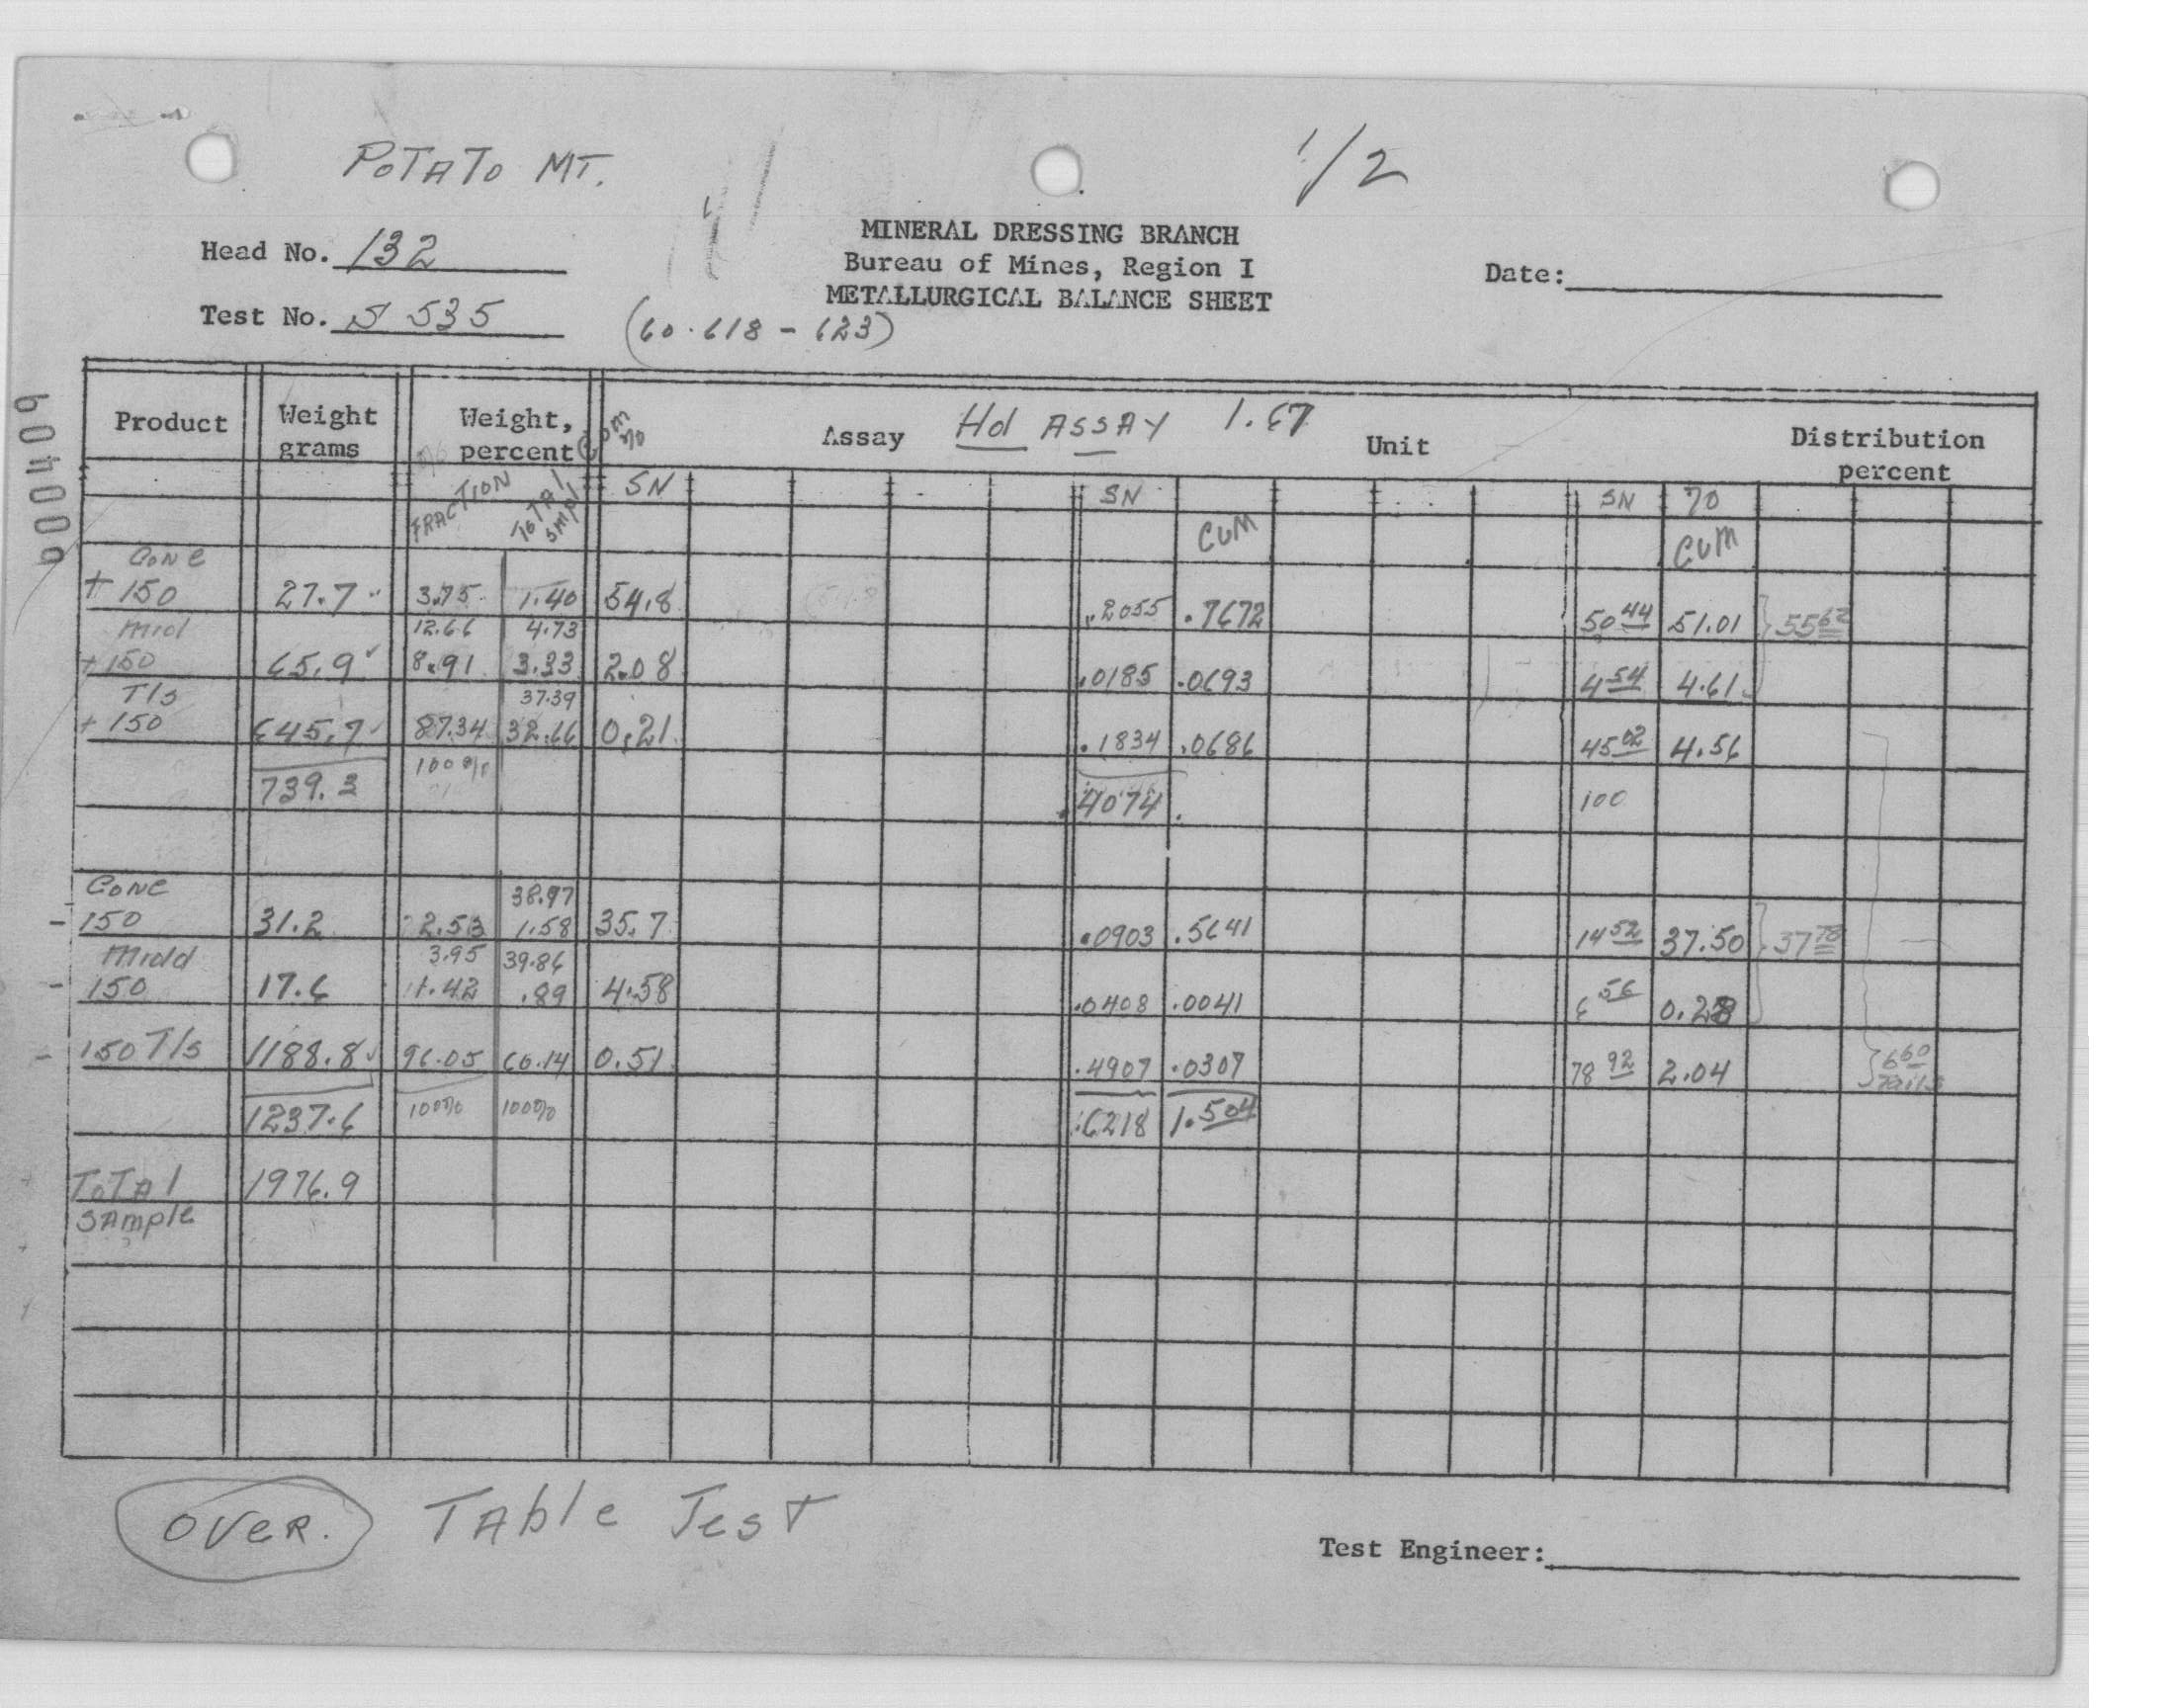 POTATO MT.
1/2
MINERAL DRESSING BRANCH
Head No. 132
Bureau of Mines, Region I
Date:
METALLURGICAL BALANCE SHEET
Test No. S 535
(60.618 - 623)
600409
Product Weight grams Weight, percent Cum % Assay Hd ASSAY 1.67 Unit Distribution percent
FRACTION TOTAL SMPL SN SN CUM SN % CUM
CONC
+ 150 27.7 3.75 1.40 54.8 .2055 .7672 50 44 51.01 } 55 62
Mid 12.66 4.73
+150 65.9 8.91 3.33 2.08 .0185 .0693 4 54 4.61
T/s 37.39
+ 150 645.7 87.34 32.66 0.21 .1834 .0686 45 02 4.56
739.3 100% .4074 100
CONC 38.97
- 150 31.2 2.53 1.58 35.7 .0903 .5641 14 52 37.50 } 37 78
Midd 3.95 39.86
- 150 17.6 1.42 .89 4.58 .0408 .0041 6 56 0.28
- 150 T/s 1188.8 96.05 60.14 0.51 .4907 .0307 78 92 2.04 } 6 60 Tails
1237.6 100% 100% .6218 1.504
TOTAL 1976.9
SAMPLE
OVER. TABLE TEST
Test Engineer: